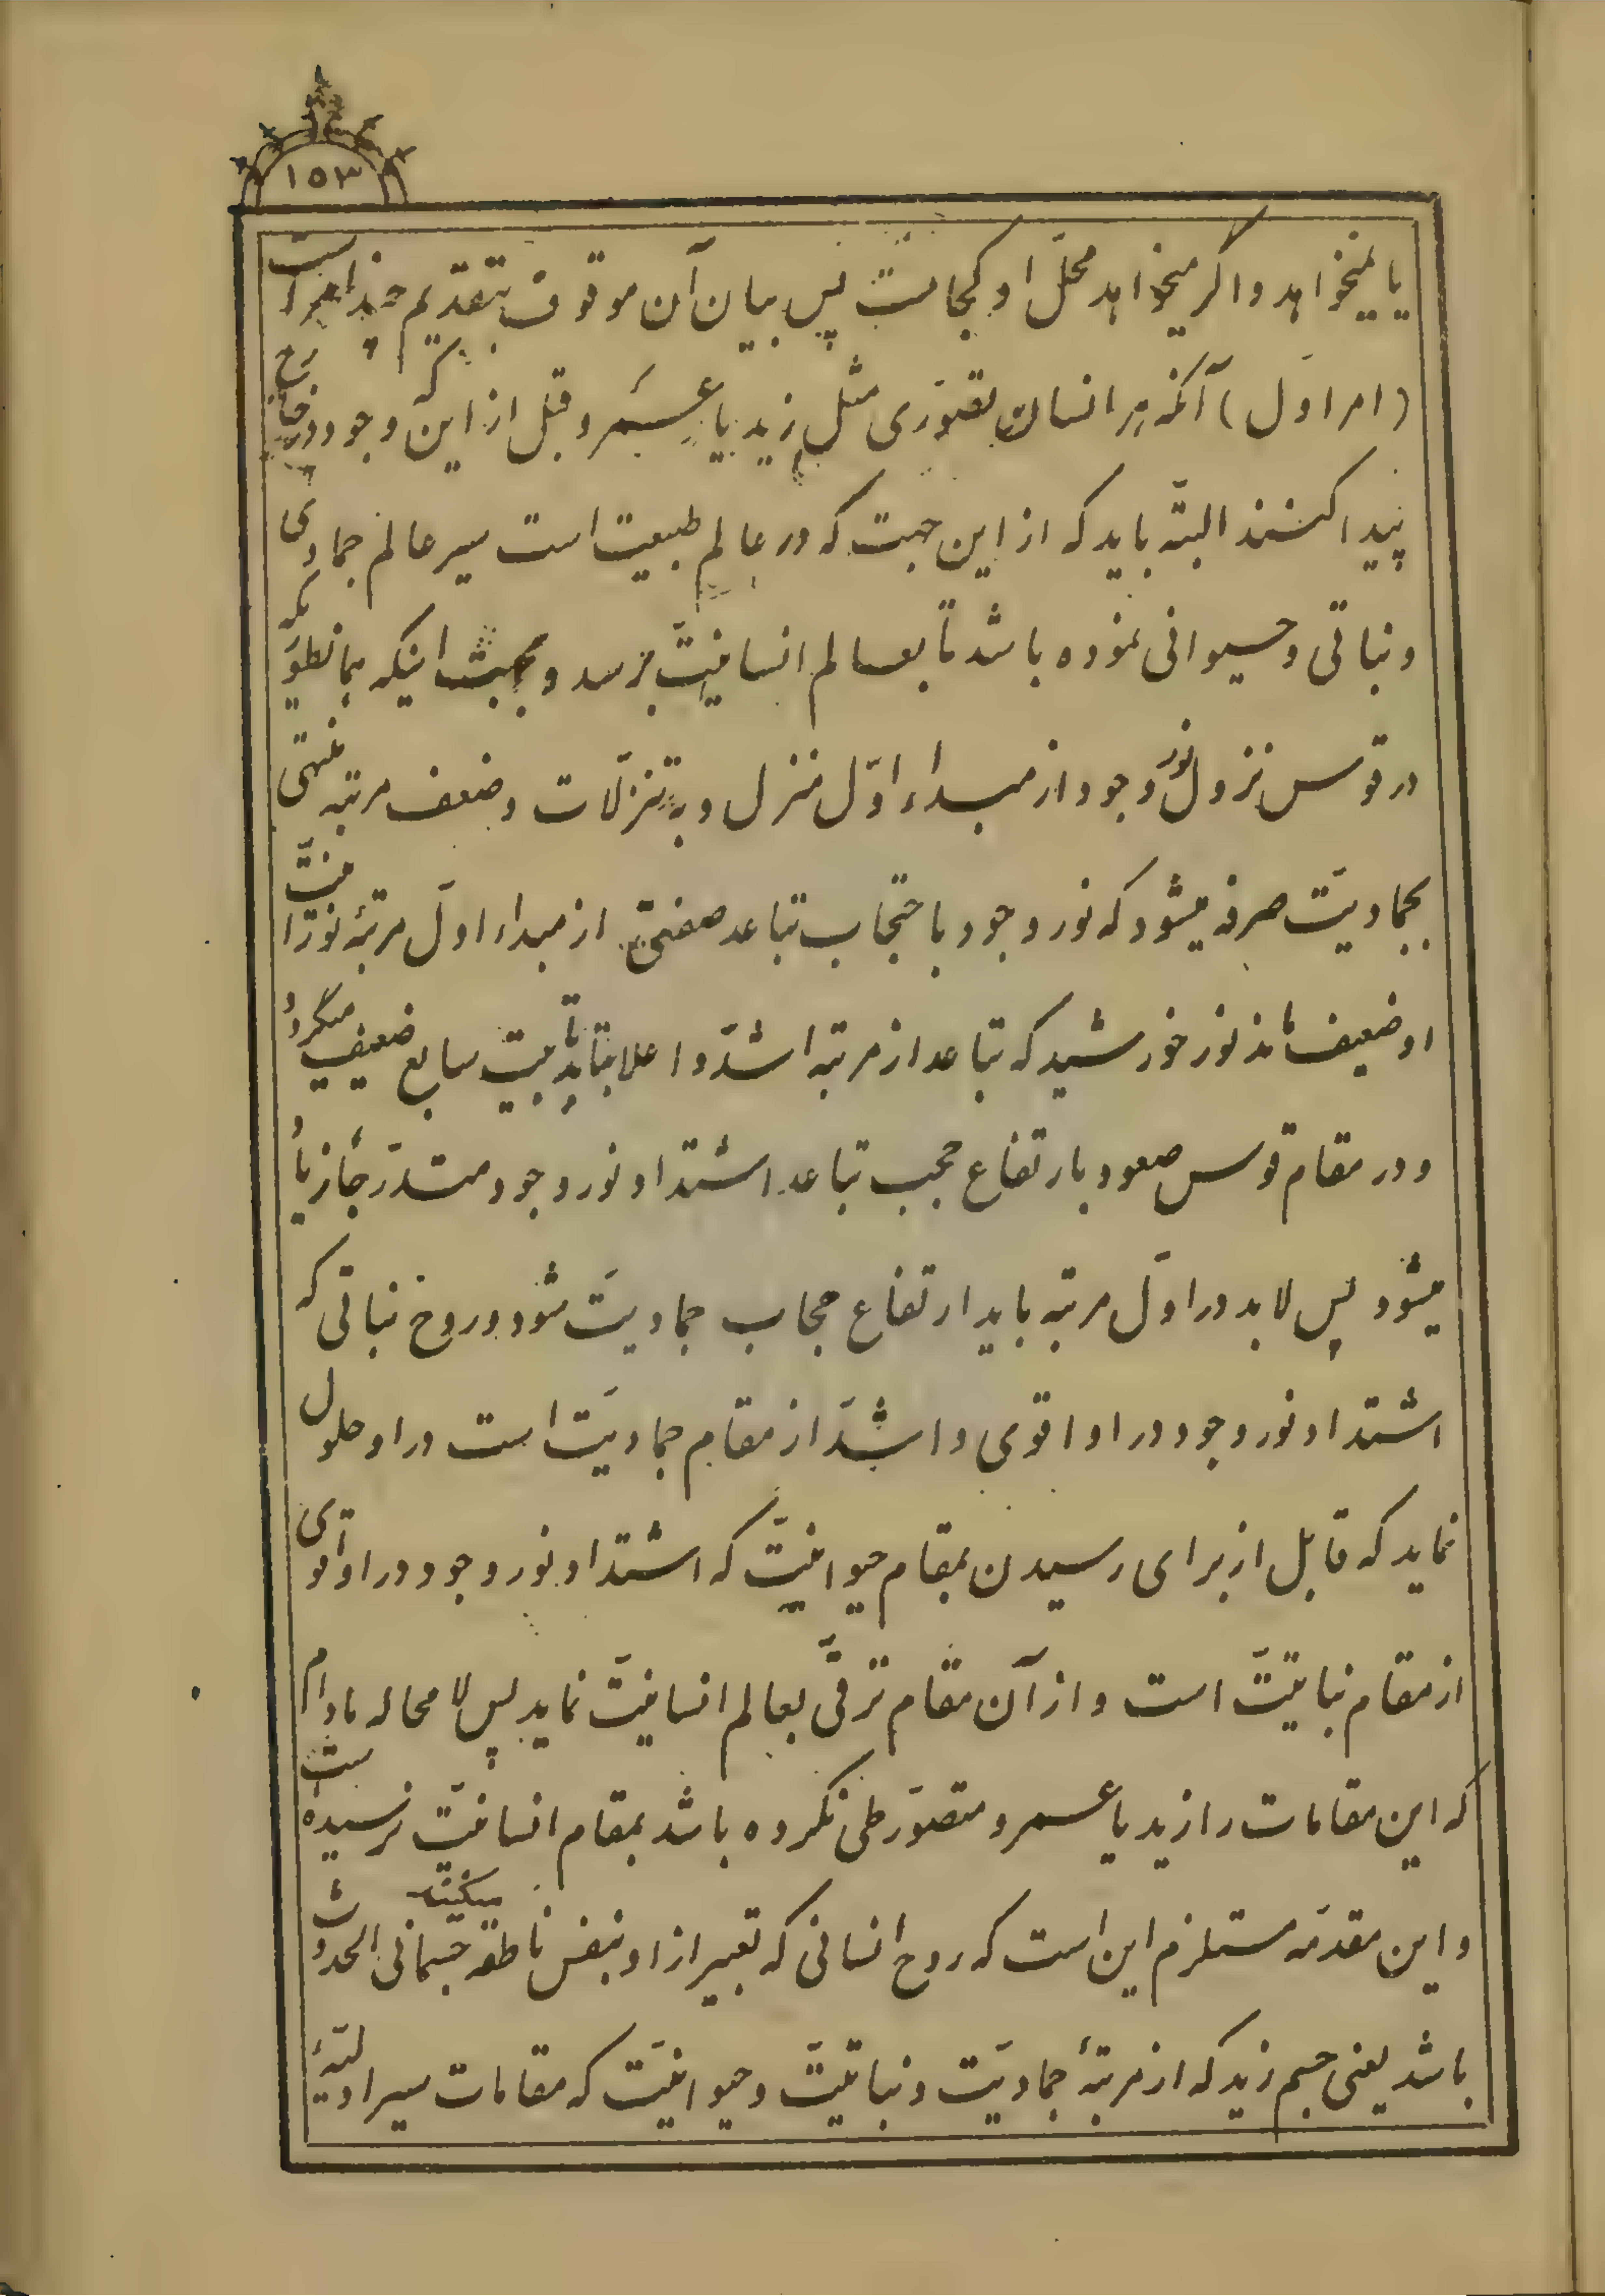 ۱۵۳
یا نمیخواهد و اگر میخواهد محلّ او کجاست پس بیان آن موقوف بتقدیم چند امر است
(امر اوّل) آنکه هر انسان تصوّری مثل زید یا عمرو قبل از این که وجود در خارج
پیدا کنند البتّه باید که از این جهت که در عالم طبیعت است سیر عالم جمادی
و نباتی و حیوانی نموده باشد تا بعالم انسانیّت برسد و بجهت اینکه همانطوریکه
در قوس نزول نور وجود از مبداء اوّل منزل و به تنزّلات و ضعف مرتبه منتهی
بجمادیّت صرفه میشود که نور وجود باحتجاب تباعد صفتی از مبداء اوّل مرتبهٔ نورانیّت
او ضعیف مانند نور خورشید که تباعد از مرتبه اشدّ و اعلا بتابد تا بیت سابع ضعیف میگردد
و در مقام قوس صعود بارتفاع حجب تباعد اشتداد نور وجود متدرّجاً زیاد
میشود پس لابد در اوّل مرتبه باید ارتفاع حجاب جمادیّت شود و روح نباتی که
اشتداد نور وجود در او اقوی و اشدّ از مقام جمادیّت است در او حلول
نماید که قابل از برای رسیدن بمقام حیوانیّت که اشتداد نور وجود در او اقوی
از مقام نباتیّت است و از آن مقام ترقّی بعالم انسانیّت نماید پس لا محاله مادام
که این مقامات را زید یا عمرو متصوّر طی نکرده باشد بمقام انسانیّت نرسیده است
و این مقدّمه مستلزم این است که روح انسانی که تعبیر از او بنفس ناطقه میکنند جسمانی الحدوث
باشد یعنی جسم زید که از مرتبهٔ جمادیّت و نباتیّت و حیوانیّت که مقامات سیر اوّلیّهٔ